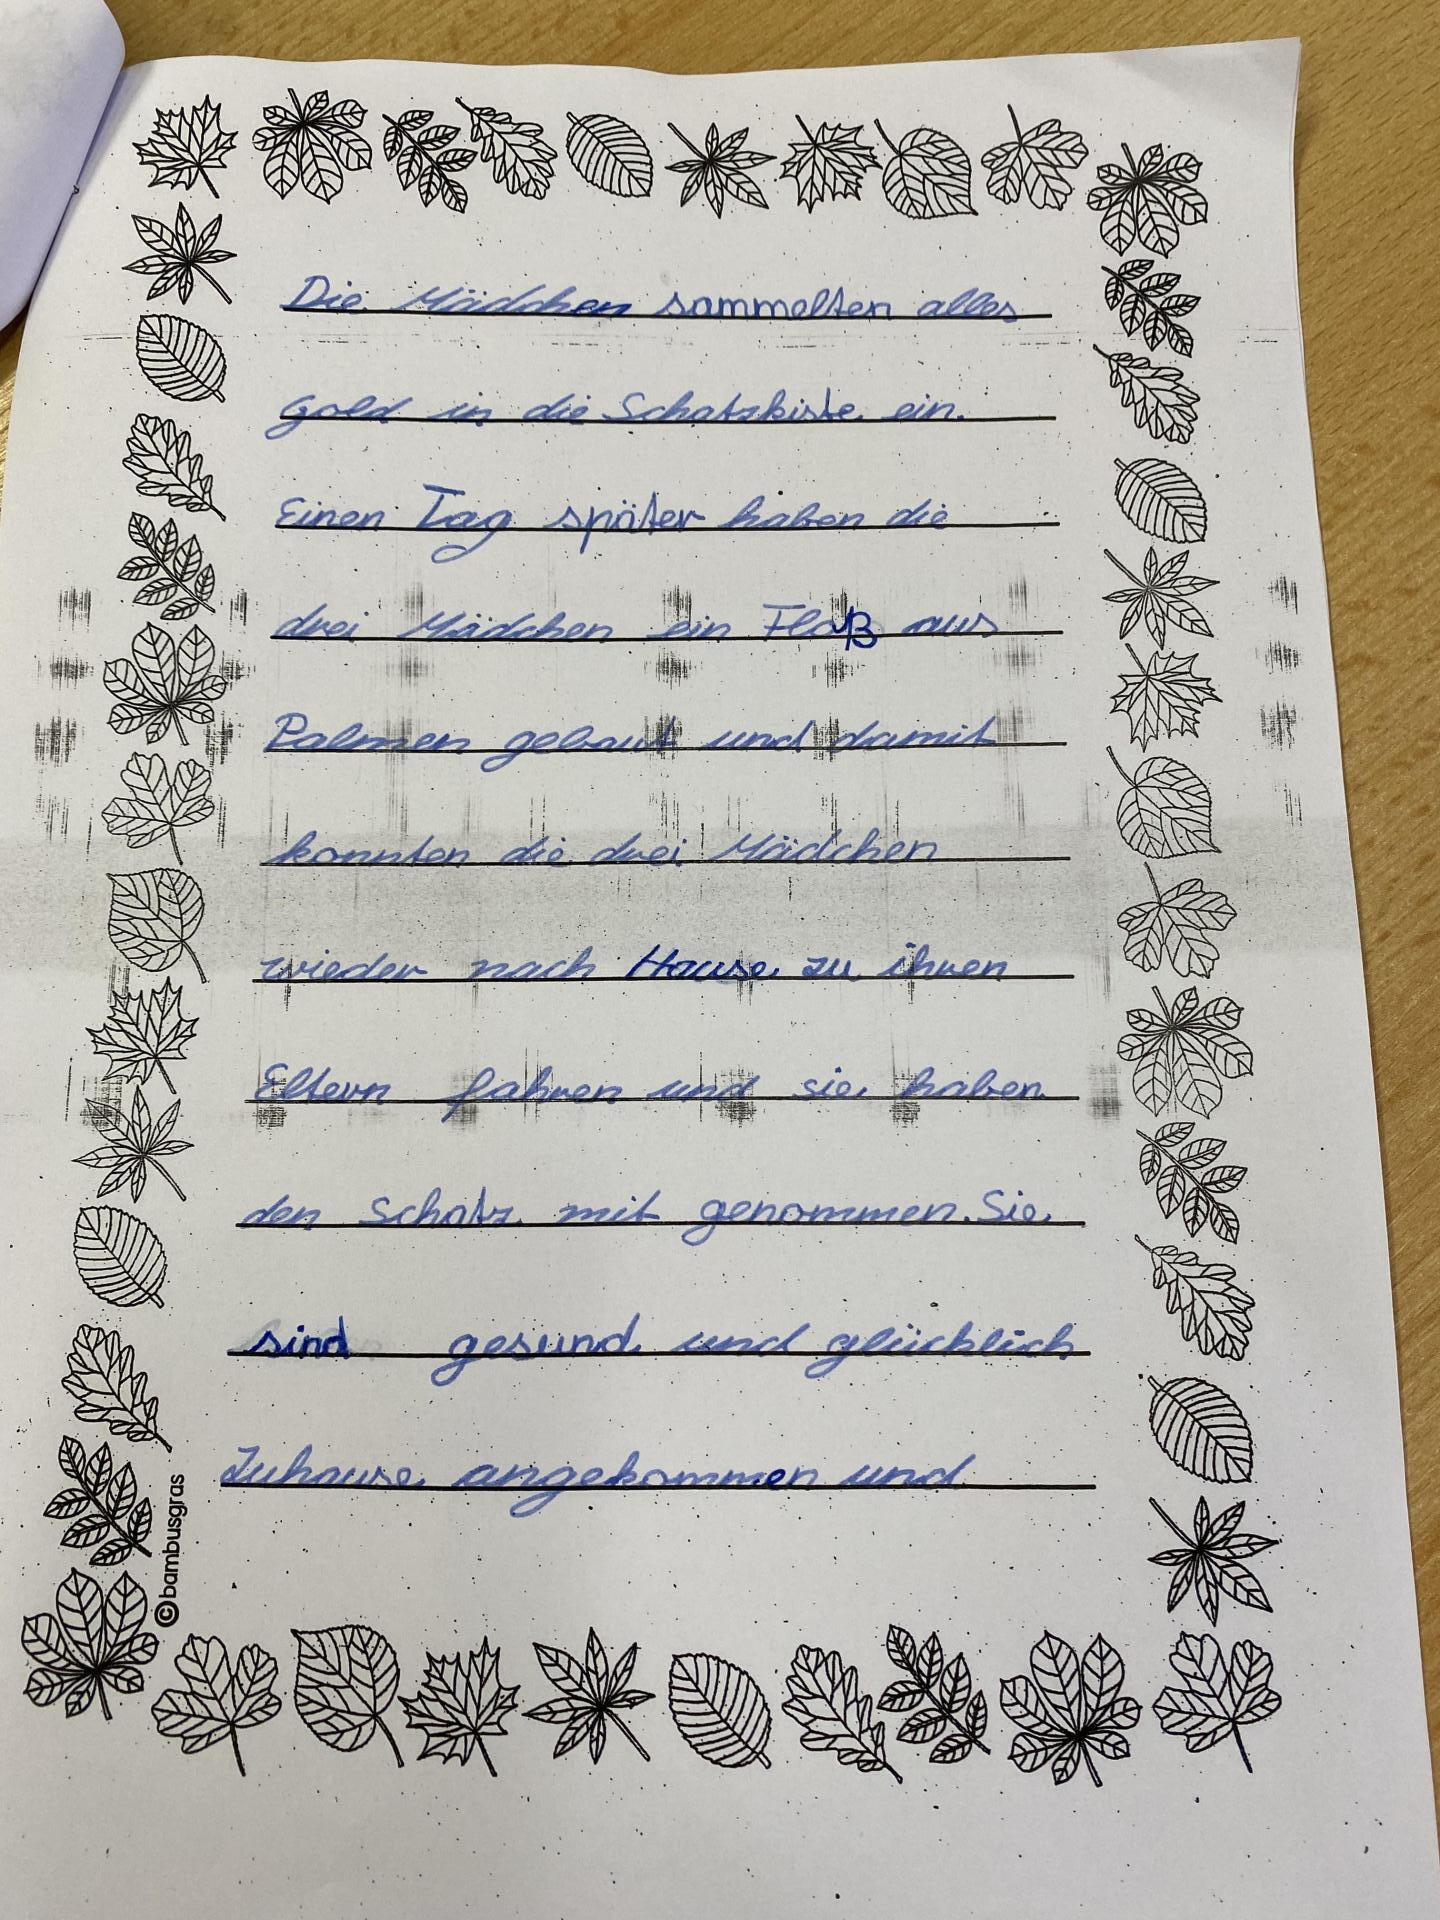 Die Mädchen sammelten alles
Gold in die Schatzkiste ein.
Einen Tag später haben die
drei Mädchen ein Floß aus
Palmen gebaut und damit
konnten die drei Mädchen
wieder nach Hause zu ihren
Eltern fahren und sie haben
den Schatz mit genommen. Sie
sind gesund und glücklich
Zuhause angekommen und
©bambusgras